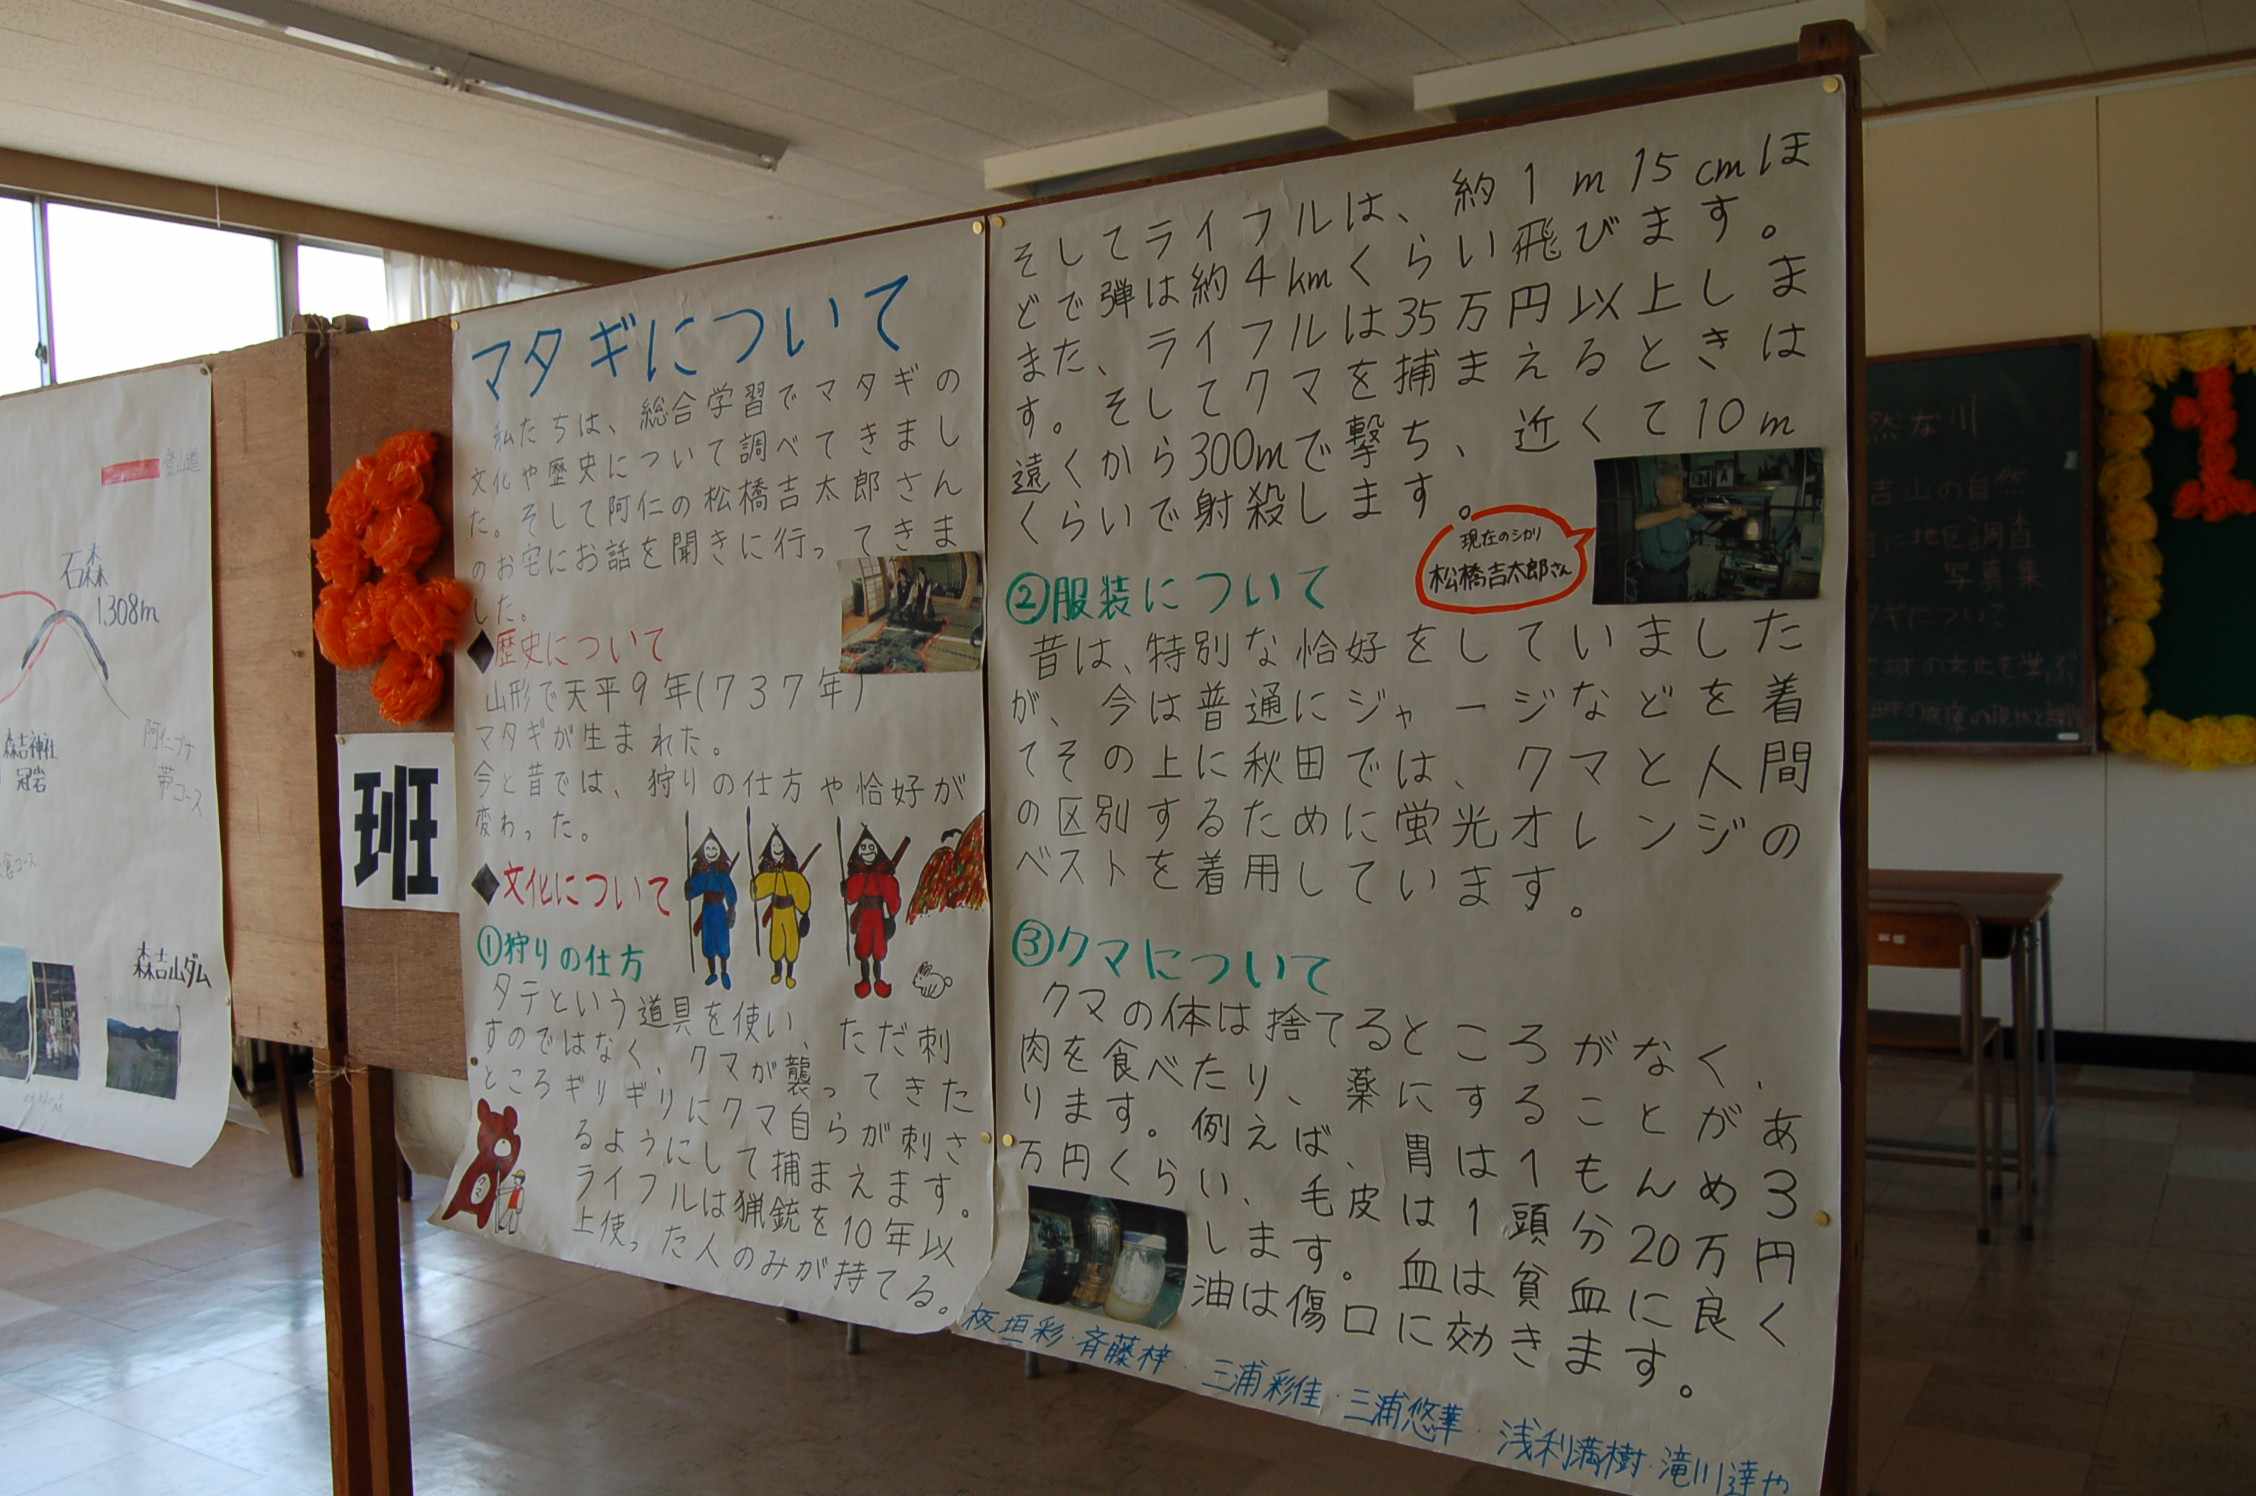 マタギについて
私たちは、総合学習でマタギの
文化や歴史について調べてきまし
た。そして阿仁の松橋吉太郎さん
のお宅にお話を聞きに行ってきま
した。
◆歴史について
山形で天平9年(737年)
マタギが生まれた。
今と昔では、狩りの仕方や恰好が
変わった。
◆文化について
①狩りの仕方
タテという道具を使い、ただ刺
すのではなく、クマが襲ってきた
ところギリギリにクマ自らが刺さ
るようにして捕まえます。
ライフルは猟銃を10年以
上使った人のみが持てる。
クマ
そしてライフルは、約1m15cmほ
どで弾は約4kmくらい飛びます。
また、ライフルは35万円以上しま
す。そしてクマを捕まえるときは
遠くから300mで撃ち、近くて10m
くらいで射殺します。
現在のシカリ
松橋吉太郎さん
②服装について
昔は、特別な恰好をしていました
が、今は普通にジャージなどを着
てその上に秋田では、クマと人間
の区別するために蛍光オレンジの
ベストを着用しています。
③クマについて
クマの体は捨てるところがなく、
肉を食べたり、薬にすることがあ
ります。例えば、胃は1もんめ3
万円くらい、毛皮は1頭分20万円
します。血は貧血に良く
油は傷口に効きます。
板垣彩・斉藤梓・三浦彩佳・三浦悠華・浅利満樹・滝川達や
班
登山道
石森
1,308m
森吉神社
冠岩
阿仁ブナ
帯コース
森吉山ダム
然な川
吉山の自然
地区調査
写真集
タギについて